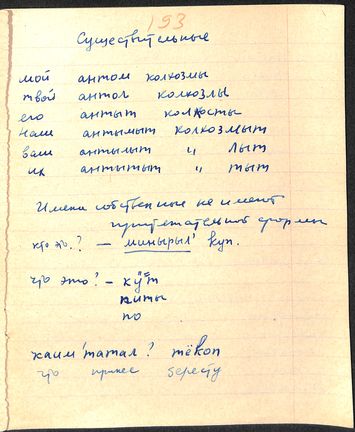 193
Существительные
мой антом колхозмы
твой антол колхозлы
его антыт колхосты
наш антымыт колхозмыт
ваш антылыт " лыт
их антытыт " тыт
Имена собственные не имеют
притяжательной формы
кто эт.? — минырыл' куп.
что это? — кӱт
питы
по
каим'татал? тёкоп
что принес бересту